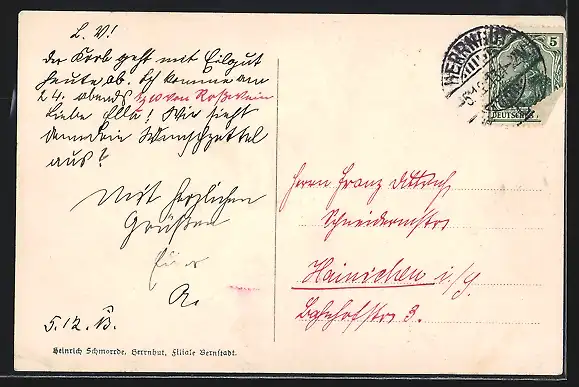 L. V!
Der Korb geht mit Eilgut
heute ab. Ich komme am
24. abends 1/210 von Roßwein
Liebe Ella! Wie sieht
denn Dein Wunschzettel
aus?
Mit herzlichen
Grüßen
5.12.13.
Herrn Franz Dittrich
Schneidermstr
Hainichen i/S.
Bahnhofstr 3.
HERRNHUT
5
DEUTSCHES
Heinrich Schmorrde, Herrnhut, Filiale Bernstadt.